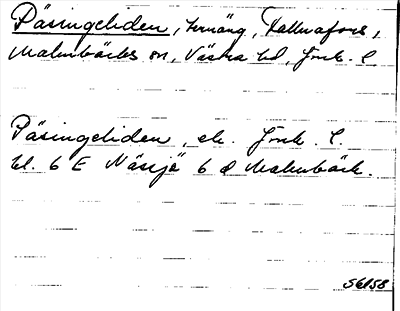 Päsingeliden, torräng, Fallnafors,
Malmbäcks sn, Västra hd, Jönk. l
Päsingeliden, ek. Jönk. l.
bl. 6 E Nässjö 6 d Malmbäck.
56/58